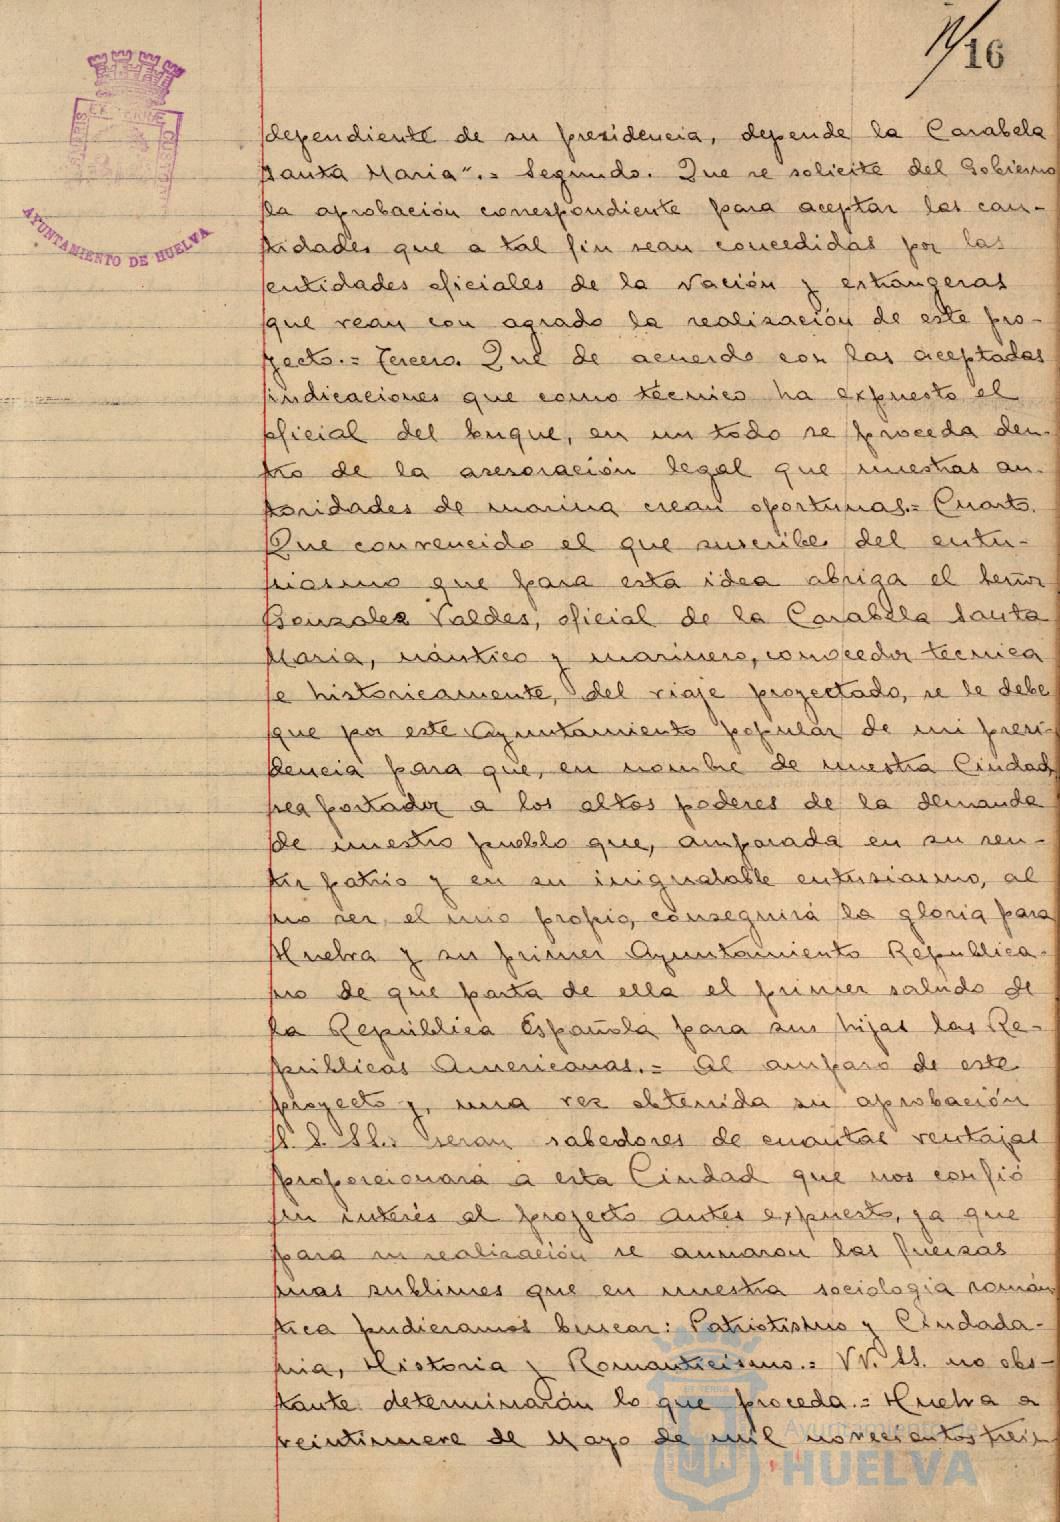 16
dependiente de su presidencia, depende la Carabela
Santa Maria".= Segundo. Que se solicite del Gobierno
la aprobación correspondiente para aceptar las can-
tidades que a tal fin sean concedidas por las
entidades oficiales de la Nación y estrangeras
que vean con agrado la realización de este pro-
yecto.= Tercero. Que de acuerdo con las aceptadas
indicaciones que como técnico ha expuesto el
oficial del buque, en un todo se proceda den-
tro de la asesoración legal que nuestras au-
toridades de marina crean oportunas.= Cuarto.
Que convencido el que suscribe del entu-
siasmo que para esta idea abriga el Señor
Gonzalez Valdes, oficial de la Carabela Santa
Maria, náutico y marinero, conocedor tecnica
e historicamente, del viaje proyectado, se le debe
que por este Ayuntamiento popular de mi presi-
dencia para que, en nombre de nuestra Ciudad
sea portador a los altos poderes de la demanda
de nuestro pueblo que, amparada en su sen-
tir patrio y en su inigualable entusiasmo, al
no ser el mio propio, conseguirá la gloria para
Huelva y su primer Ayuntamiento Republica-
no de que parta de ella el primer saludo de
la República Española para sus hijas las Re-
públicas Americanas.= Al amparo de este
proyecto y, una vez obtenida su aprobación
S. S. SS.: seran sabedores de cuantas ventajas
proporcionará a esta Ciudad que nos confió
sin interés el proyecto antes expuesto, ya que
para su realización se aunaron las fuerzas
mas sublimes que en nuestra sociologia román
tica pudieramos buscar: Patriotismo y Ciudada-
nia, Historia y Romanticismo.= VV. SS. no obs-
tante determinarán lo que proceda.= Huelva a
veintinueve de Mayo de mil novecientos trein-
AYUNTAMIENTO DE HUELVA
Ayuntamiento de
HUELVA